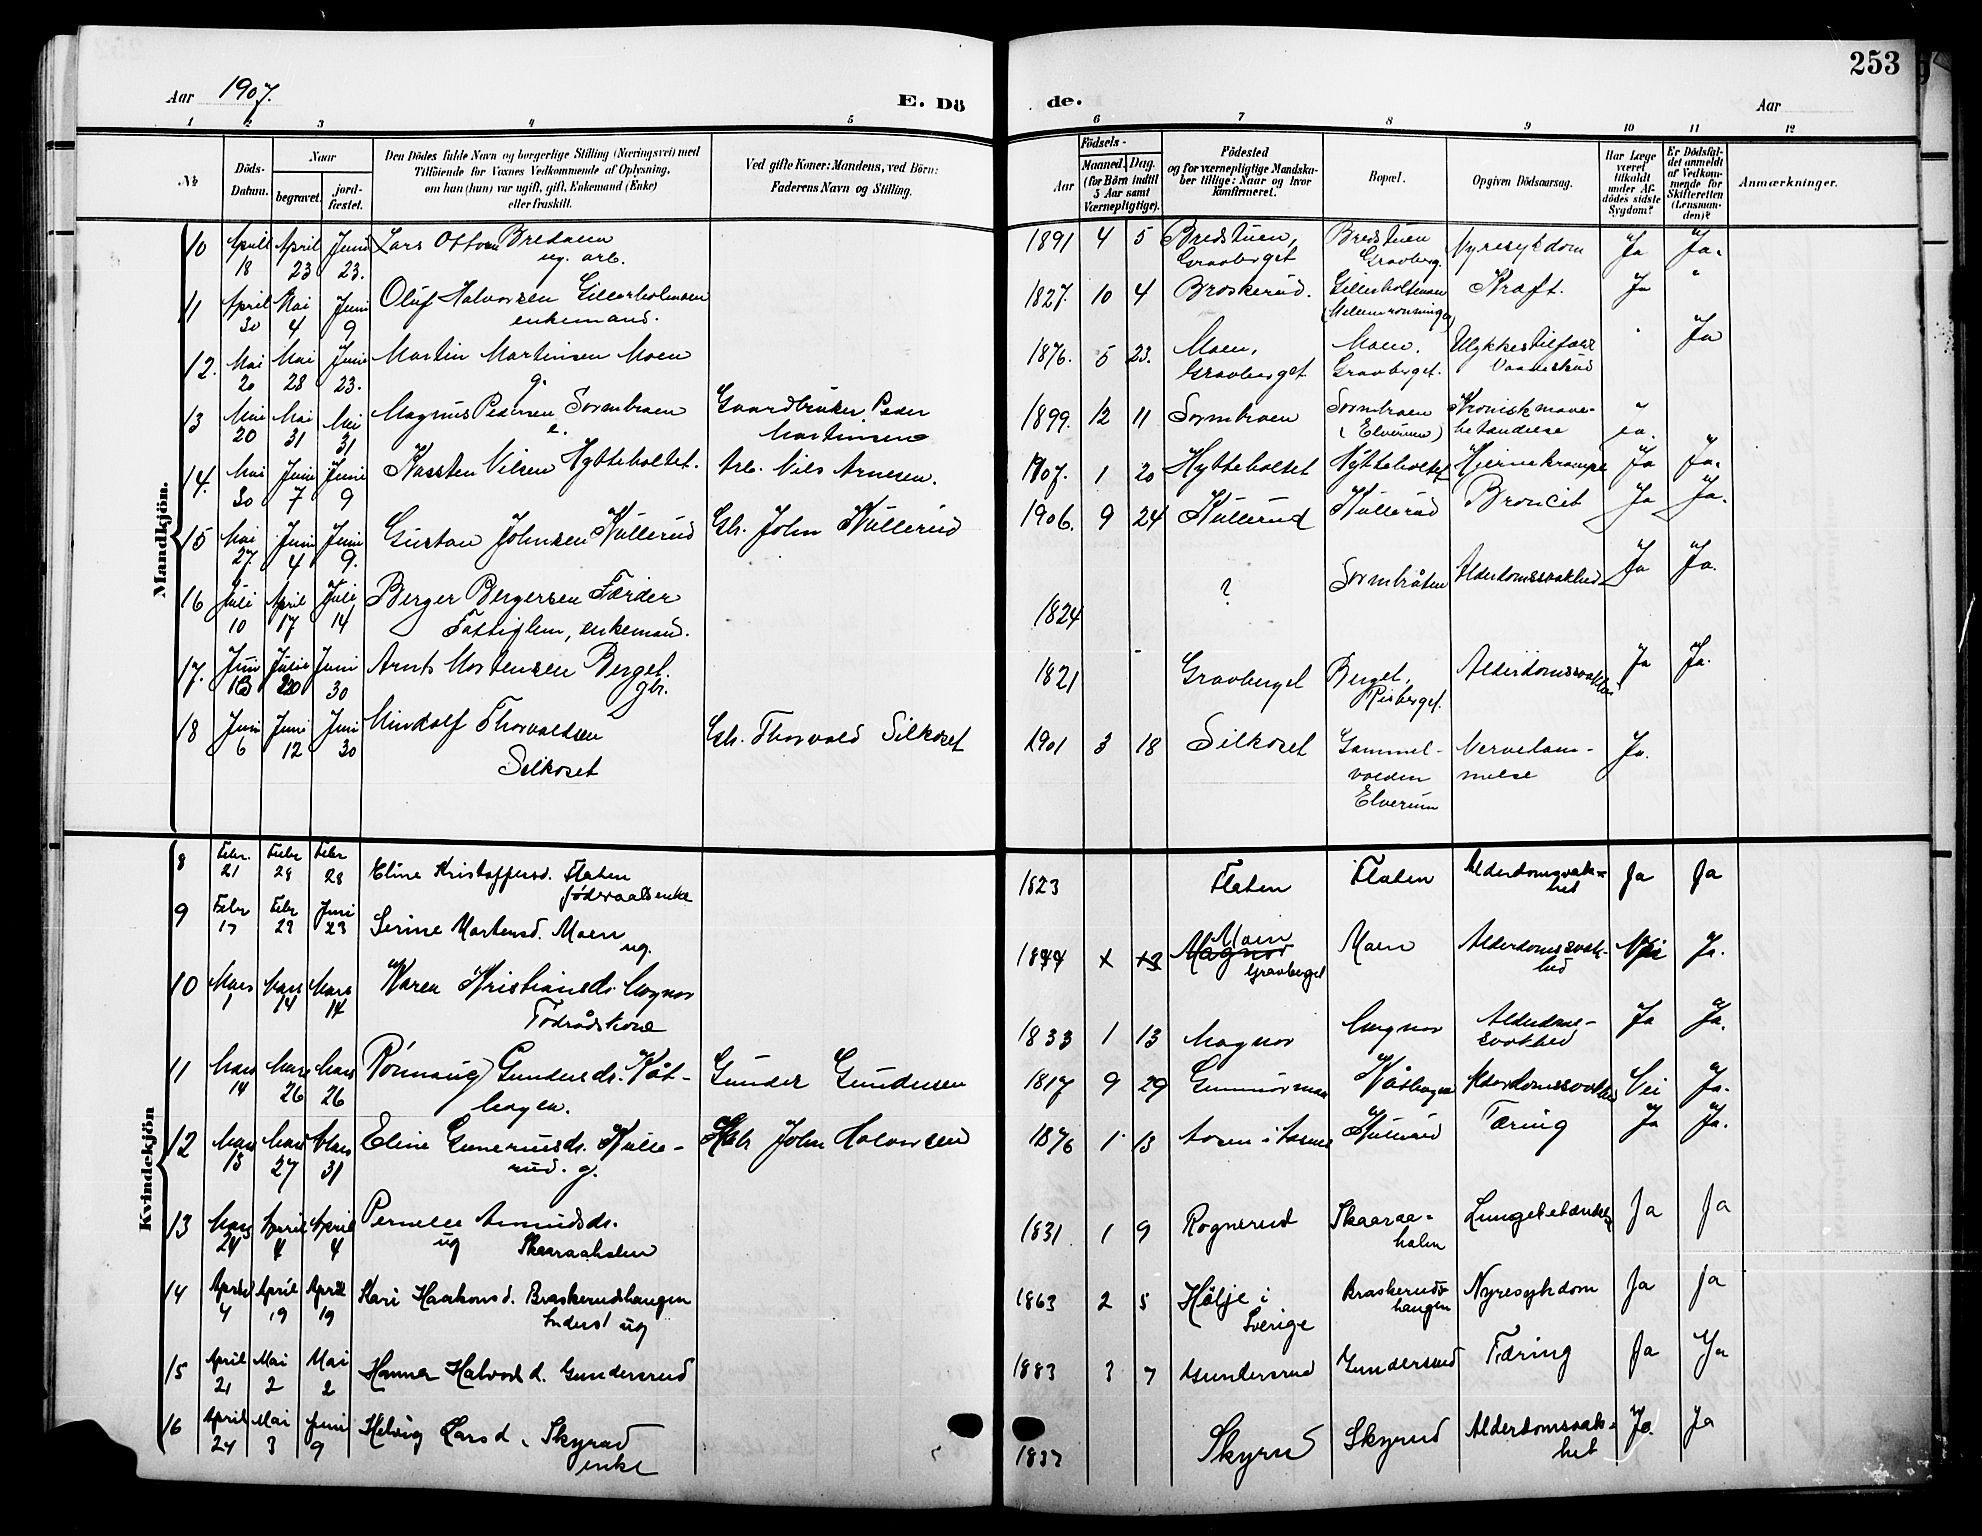 253
Aar 1907.
E. Dö
de.
Aar
1 2 3 4 5 6 7 8 9 10 11 12
No
Döds-
Datum.
Naar
begravet.
jord-
fæstet.
Den Dödes fulde Navn og borgerlige Stilling (Næringsvei) med
Tilföiende for Voxnes Vedkommende af Oplysning,
om han (hun) var ugift, gift, Enkemand (Enke)
eller fraskilt.
Ved gifte Koner: Mandens, ved Börn:
Faderens Navn og Stilling.
Födsels-
Aar
Maaned. Dag.
(for Börn indtil
5 Aar samt
Værnepligtige).
Födested
og for værnepligtige Mandska-
ber tillige: Naar og hvor
konfirmeret.
Bopæl.
Opgiven Dödsaarsag.
Har Læge
været
tilkaldt
under Af-
dödes sidste
Sygdom?
Er Dödsfal-
det anmeldt
af Vedkom-
mende for
Skifteretten
(Lensman-
den)?
Anmærkninger.
Mandkjön.
10 April 18 April 23 Juni 23. Lars Ottosen Bredalen ug. arb. 1891 4 5 Bredstuen, Gravberget Bredstuen Gravberg. Nyresykdom Ja Ja.
11 April 30 Mai 4 Juni 9 Oluf Halvorsen Gillerholmoen enkemand. 1827. 10 4 Braskerud. Kræft. Ja "
12. Mai 20 Mai 28 Juni 23. Martin Martinsen Moen g. 1876. 5 23. Moen, Gravberget. Moen. Gravberget. Ulykkestilfælde Vaadeskud Ja
13 Mai 20 Mai 31 Mai 31 Magnus Pedersen Sormbraen Gaardbruker Peder Martinsen 1899. 12 11 Sormbraen Sormbraen (Elverum) Kronisk mave-betændelse Ja.
14. Mai 30 Juni 7 Juni 9 Karsten Nilsen Hytteholtet. Arb. Nils Arnesen. 1907. 1 20 Hytteholtet Hytteholtet Hjernekrampe Ja Ja.
15 Mai 27. Juni 4 Juni 9. Gustav Johnsen Kullerud Gbr. John Kullerud 1906. 9 24 Kullerud Kullerud Broncit Ja Ja.
16 Juli 10 April 17 Juli 14 Berger Bergersen Færder Fattiglem, enkemand. 1824 ? Sormbråten Alderdomssvakhed Ja Ja.
17. Juni 13 Juni 20 Juni 30 Arnt Mortensen Berget. gbr. 1821 Gravberget Berget, Risberget. Alderdomssvakhed Ja Ja.
18 Juni 6 Juni 12 Juni 30 Mindolf Thorvaldsen Silkoset Gbr. Thorvald Silkoset 1901 3 18 Silkoset Gammel-volden Elverum Nervelam-melse Ja.
Kvindekjön
8 Febr. 21 Febr 28 Febr 28 Eline Kristoffersd. Flaten föderaadsenke 1823 Flaten Flaten Alderdomsvak=het Ja Ja
9 Febr 17 Febr 23 Juni 23 Serine Martensd. Moen ug. Moen Gravberget Moen Alderdomssvak-hed Nei Ja.
10 Mars 1 Mars 14 Mars 14 Karen Kristiansdr. Magnor Fødrådskone 1833 1 13 Magnor Magnor Alderdoms-svakhed Ja Ja.
11 Mars 14 Mars 26 Mars 26 Rönnaug Gundersdr. Kåt-hagen. Gunder Gundersen 1817 9 29 Kåthagen Alderdomssvakhed Nei Ja.
12 Mars 15 Mars 27 Mars 31 Eline Gunerusdr. Kulle-rud. g. Gbr John Halvorsen 1876 1 13 Aasen i Aasnes Kullerud Tæring Ja Ja.
13 Mars 24 April 4 April 4 Pernelle Amundsdr. ug Skaaraahalen 1831 1 9 Rognerud Skaaraa=halen Lungebetændelse Ja Ja
14 April 4 April 19 April 19 Kari Haakonsd. Braskerudhaugen Inderst ug 1863 2 5 Höljе i Sverige Braskeruds-haugen Nyresykdom Ja Ja
15 April 21 Mai 2 Mai 2 Hanna Halvorsd. Gundersrud 1883 3 7 Gundersrud Gundersrud Tæring Ja Ja
16 April 24 Mai 3 Juni 9 Helvig Larsd. Skyrud enke 1837 Skyrud Skyrud Alderdomssvak=het Ja. Ja